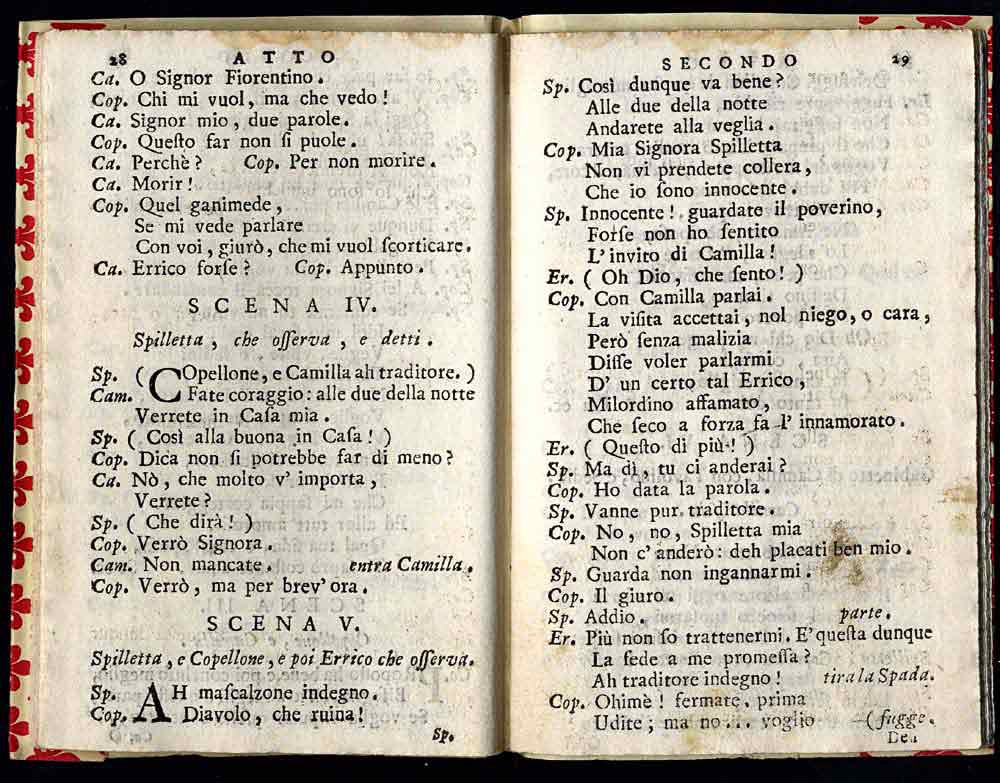 28 ATTO
Ca. O Signor Fiorentino.
Cop. Chi mi vuol, ma che vedo!
Ca. Signor mio, due parole.
Cop. Queſto far non ſi puole.
Ca. Perchè? Cop. Per non morire.
Ca. Morir!
Cop. Quel ganimede,
Se mi vede parlare
Con voi, giurò, che mi vuol ſcorticare.
Ca. Errico forſe? Cop. Appunto.
SCENA IV.
Spilletta, che oſſerva, e detti.
Sp. (COpellone, e Camilla ah traditore.)
Cam. Fate coraggio: alle due della notte
Verrete in Caſa mia.
Sp. (Così alla buona in Caſa!)
Cop. Dica non ſi potrebbe far di meno?
Ca. Nò, che molto v' importa,
Verrete?
Sp. (Che dirà!)
Cop. Verrò Signora.
Cam. Non mancate. entra Camilla.
Cop. Verrò, ma per brev' ora.
SCENA V.
Spilletta, e Copellone, e poi Errico che oſſerva.
Sp. AH maſcalzone indegno.
Cop. Diavolo, che ruina!
Sp.
SECONDO 29
Sp. Così dunque va bene?
Alle due della notte
Andarete alla veglia.
Cop. Mia Signora Spilletta
Non vi prendete collera,
Che io ſono innocente.
Sp. Innocente! guardate il poverino,
Forſe non ho ſentito
L' invito di Camilla!
Er. (Oh Dio, che ſento!)
Cop. Con Camilla parlai.
La viſita accettai, nol niego, o cara,
Però ſenza malizia
Diſſe voler parlarmi
D' un certo tal Errico,
Milordino affamato,
Che ſeco a forza fa l' innamorato.
Er. (Queſto di più!)
Sp. Ma dì, tu ci anderai?
Cop. Ho data la parola.
Sp. Vanne pur traditore.
Cop. No, no, Spilletta mia
Non c' anderò: deh placati ben mio.
Sp. Guarda non ingannarmi.
Cop. Il giuro.
Sp. Addio. parte.
Er. Più non ſo trattenermi. E' queſta dunque
La fede a me promeſſa?
Ah traditore indegno! tira la Spada.
Cop. Ohimè! fermate, prima
Udite; ma no... voglio (fugge.